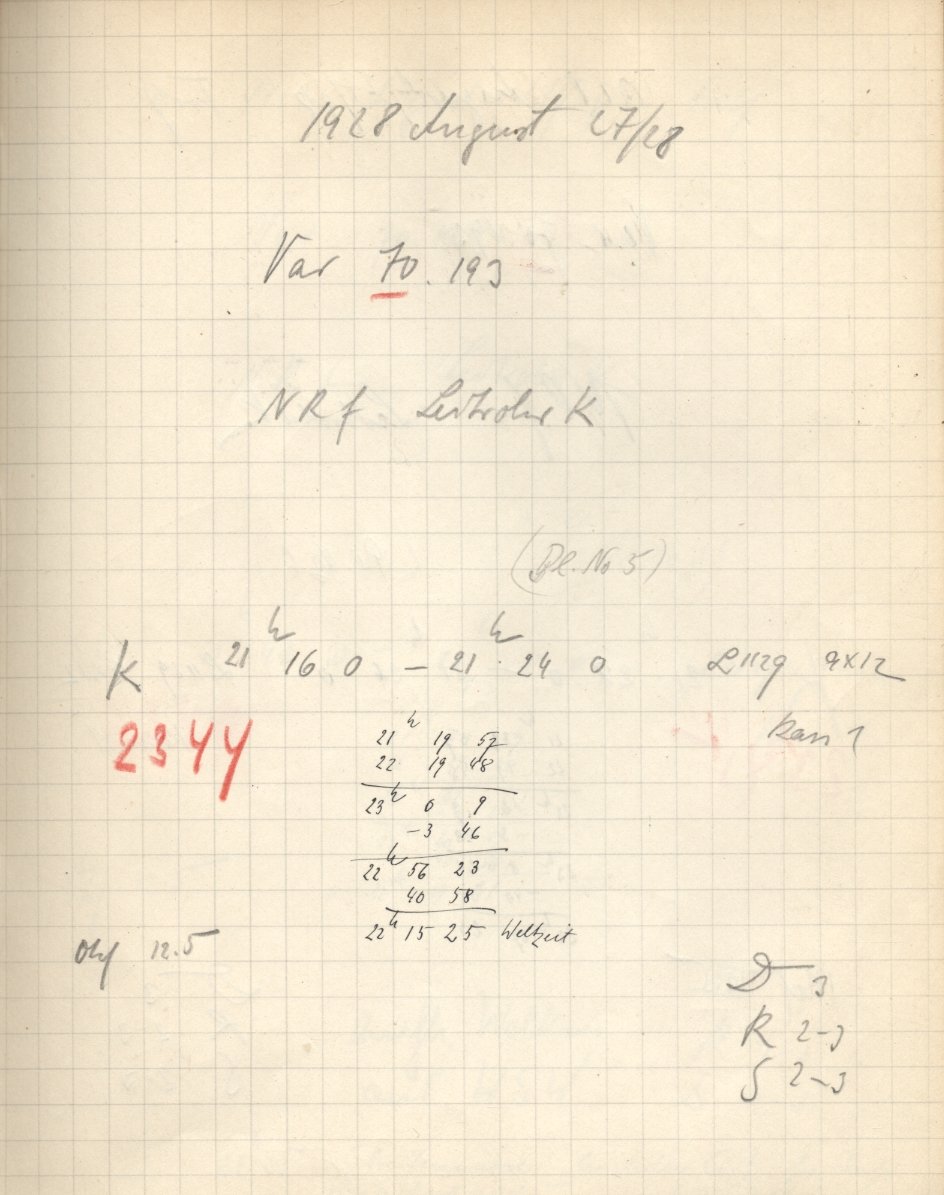 1928 August 27/28
Var 70.193
NRf Leitrohr K
(Pl. No 5)
K 21h 16 0 – 21h 24 0 9x12
2344
Kass 1
21h 19 57
22 19 48
23h 0 9
-3 46
22h 56 23
40 58
22h 15 25 Weltzeit
Obj 12.5
D 3
R 2-3
S 2-3